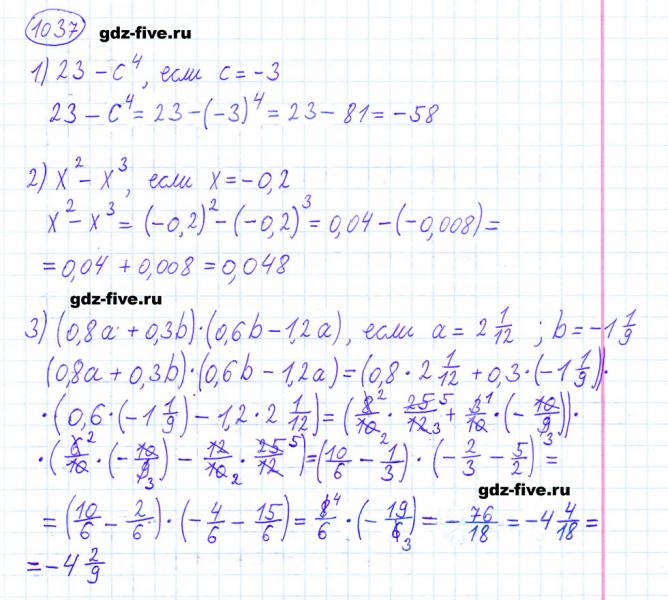 1037 gdz-five.ru
1) 23 − c⁴, если c = −3
23 − c⁴ = 23 − (−3)⁴ = 23 − 81 = −58
2) x² − x³, если x = −0,2
x² − x³ = (−0,2)² − (−0,2)³ = 0,04 − (−0,008) =
= 0,04 + 0,008 = 0,048
gdz-five.ru
3) (0,8a + 0,3b)·(0,6b − 1,2a), если a = 2 1/12 ; b = −1 1/9
(0,8a + 0,3b)·(0,6b − 1,2a) = (0,8 · 2 1/12 + 0,3 · (−1 1/9))·
·(0,6 · (−1 1/9) − 1,2 · 2 1/12) = (8²/10₂ · 25⁵/12₃ + 3¹/10 · (−10/9₃))·
·(6²/10 · (−10/9₃) − 12/10₂ · 25⁵/12) = (10/6 − 1/3) · (−2/3 − 5/2) =
gdz-five.ru
= (10/6 − 2/6) · (−4/6 − 15/6) = 8⁴/6 · (−19/6₃) = −76/18 = −4 4/18 =
= −4 2/9